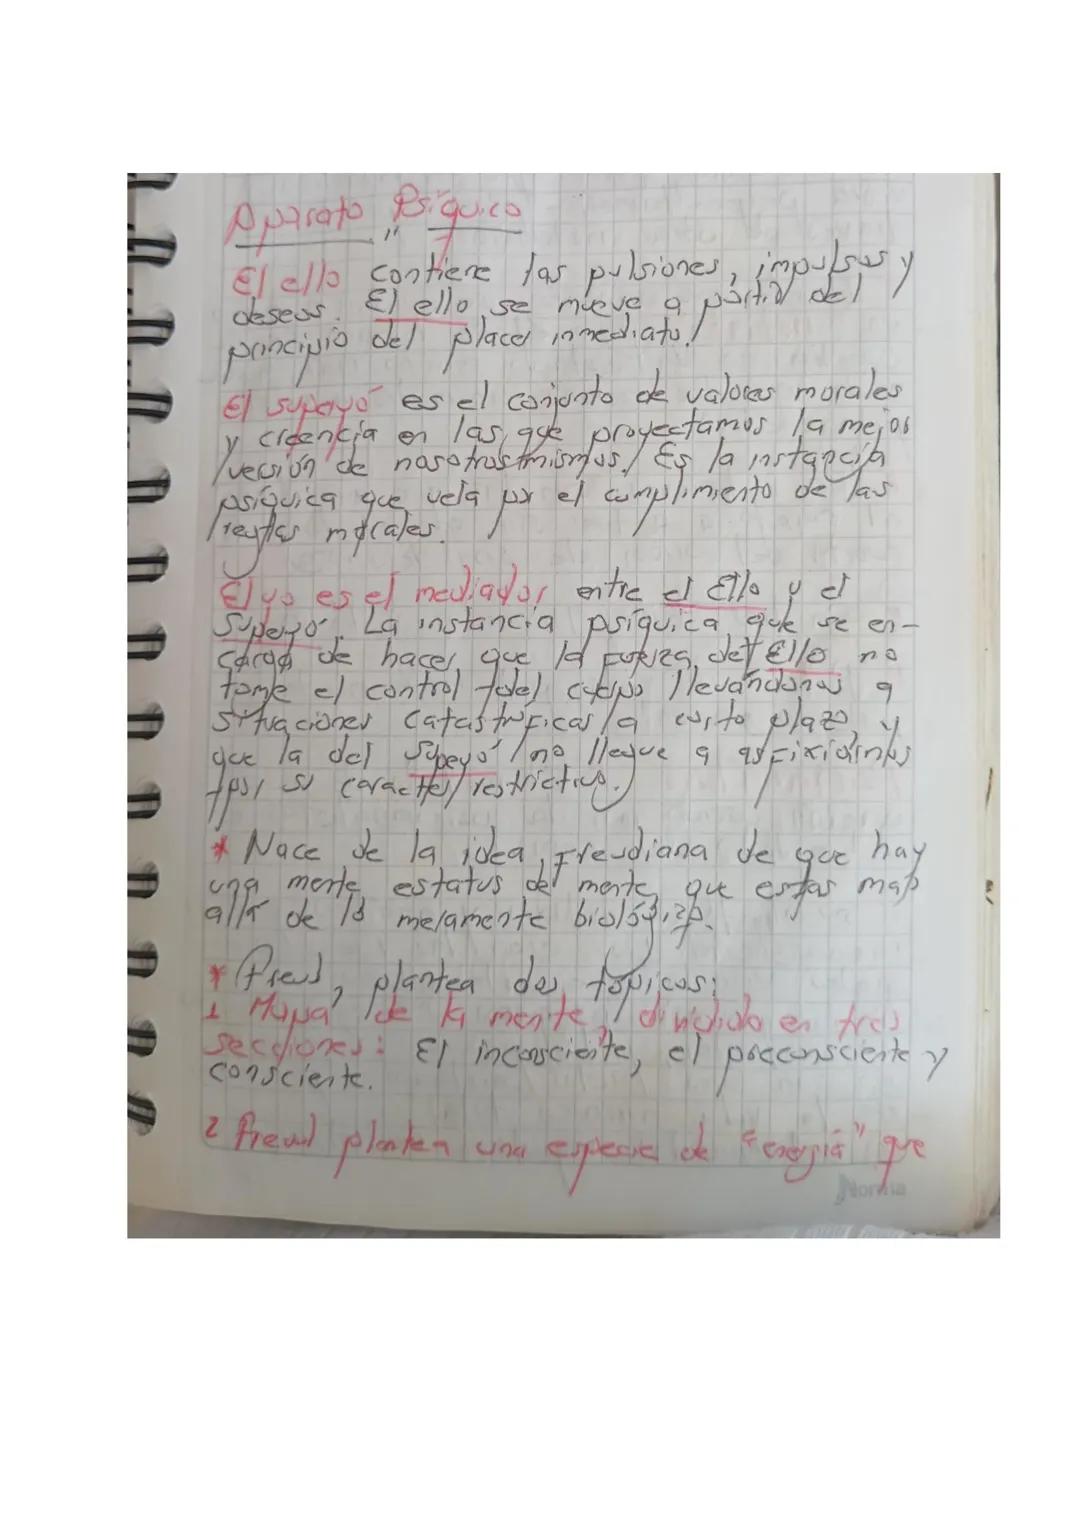 Aparato Psíquico
El ello contiene las pulsiones, impulsos y
deseos. El ello se mueve a partir del
principio del placer inmediato.
El superyó es el conjunto de valores morales
y creencia en las que proyectamos la mejor
versión de nosotros mismos. Es la instancia
psíquica que vela por el cumplimiento de las
reglas morales.
El yo es el mediador entre el Ello y el
Superyó. La instancia psíquica que se en-
carga de hacer que la fuerza del Ello no
tome el control del cuerpo llevándonos a
situaciones catastróficas a corto plazo, y
que la del Supeyó no llegue a asfixiarnos
por su caracter restrictivo.
* Nace de la idea Freudiana de que hay
una mente, estatus de mente que estas mas
alla de lo meramente biológico.
* Freud, plantea dos tópicos:
1 Mapa de la mente, dividido en tres
secciones: El inconsciente, el preconsciente y
consciente.
2 Freud plantea una especie de "energía" que
Norma